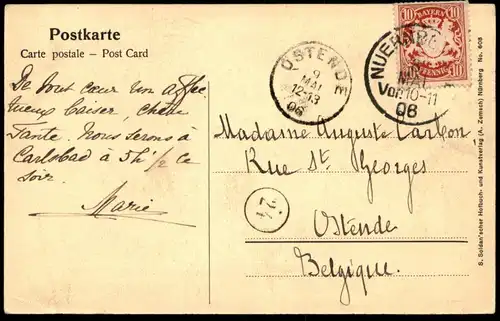 Postkarte
Carte postale – Post Card
De tout cœur un affec
tueux baiser, chère
Tante. Nous serons à
Carlsbad à 5h 1/2 ce
soir.
Marie
OSTENDE
9
MAI
12-13
06
NUERNBE
MAI
Vor.10-11
06
10 BAYERN 10
10 PFENNIG 10
Madame Auguste Carbon
Rue St Georges
Ostende
Belgique.
24
S. Soldan'scher Hofbuch- und Kunstverlag (A. Zemsch) Nürnberg. No 608